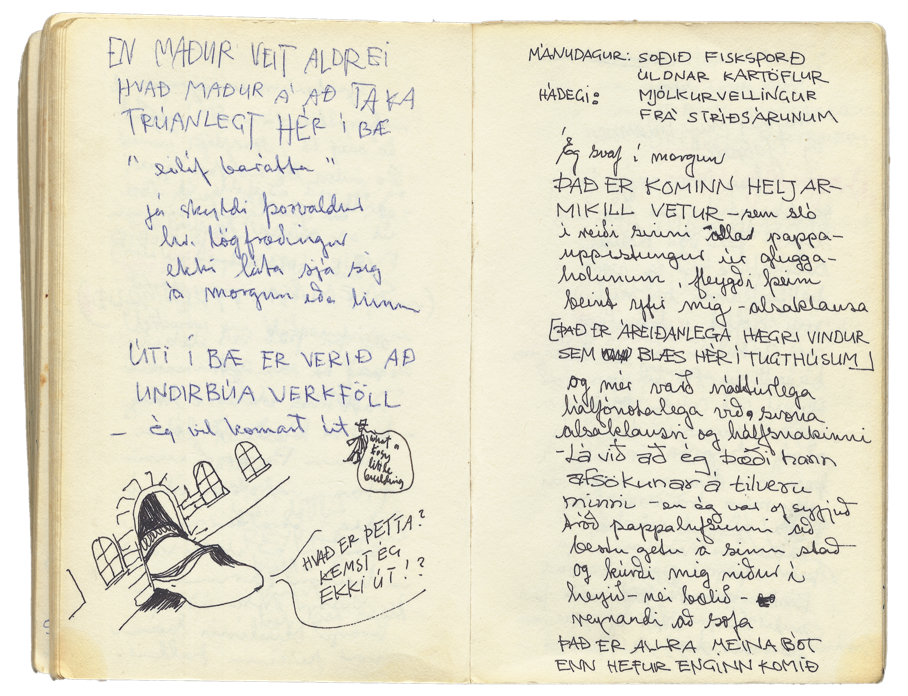 EN MAÐUR VEIT ALDREI
HVAÐ MAÐUR Á AÐ TAKA
TRÚANLEGT HÉR Í BÆ
" eilíf barátta "
já skyldi þorvaldur
hr. lögfræðingur
ekki láta sjá sig
á morgun eða hinn
ÚTI Í BÆ ER VERIÐ AÐ
UNDIRBÚA VERKFÖLL
– Ég vil komast út
what a
cosy
little
building
HVAÐ ER ÞETTA?
KEMST ÉG
EKKI ÚT!?
MÁNUDAGUR: SOÐIÐ FISKSPORÐ
ÚLDNAR KARTÖFLUR
HÁDEGI: MJÓLKURVELLINGUR
FRÁ STRÍÐSÁRUNUM
Ég svaf í morgun
ÞAÐ ER KOMINN HELJAR-
MIKILL VETUR – sem sló
í reiði sinni pappa-
uppistungur úr glugga-
holunum, fleygði þeim
beint yfir mig – alsaklausa
[ÞAÐ ER ÁREIÐANLEGA HÆGRI VINDUR
SEM BLÆS HÉR Í TUGTHÚSUM]
og mér varð náttúrlega
hálfónotalega við, svona
alsaklausri og hálfnakinni
– Lá við að ég bæði hann
afsökunar á tilveru
minni – en ég var of syfjuð
tróð pappalufsunni að
bestu getu á sinn stað
og kúrði mig niður í
heyið – nei bælið –
reynandi að sofa
ÞAÐ ER ALLRA MEINA BÓT
ENN HEFUR ENGINN KOMIÐ